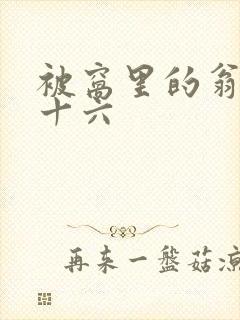 被窝里的翁
十六
再来一盘菇凉